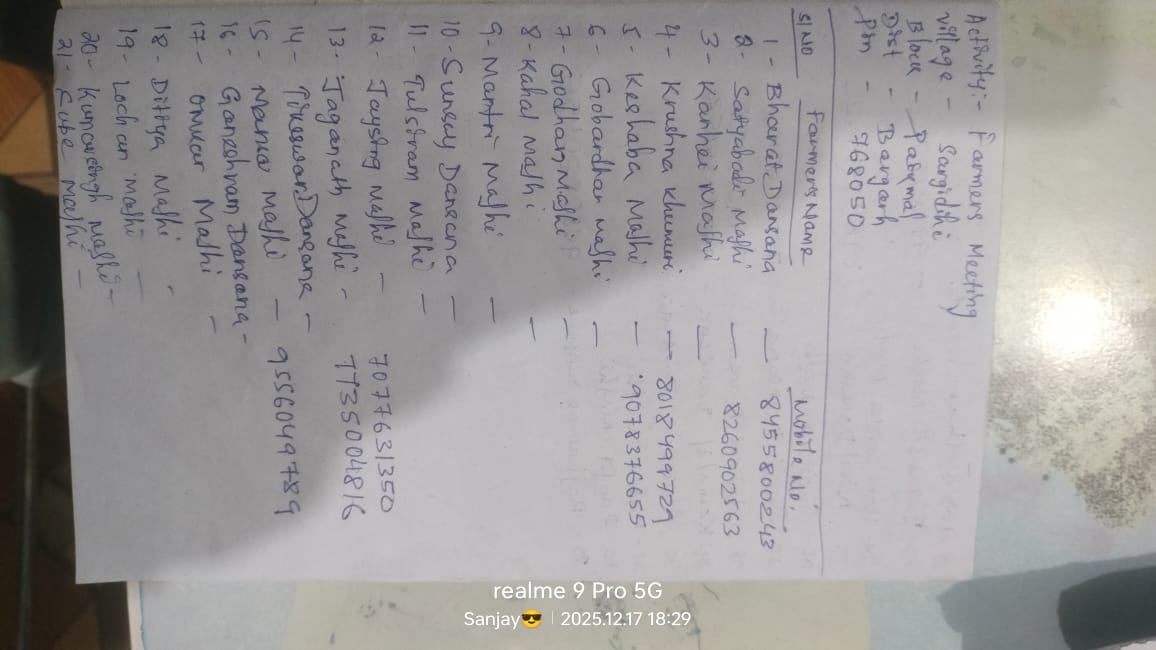 Activity:- Farmers Meeting
village - Sargidihi
Block - Paikmal
Dist - Bargarh
Pin - 768050
Sl No Farmers Name Mobile No.
1 - Bharat Dansana — 8455800243
2 - Satyabadi Majhi — 8260902563
3 - Kanhei Majhi —
4 - Krushna Khemuri — 8018499729
5 - Keshaba Majhi — 9078376655
6 - Gobardhan Majhi —
7 - Godhan Majhi —
8 - Kahal Majhi —
9 - Mantri Majhi —
10 - Sunsay Dansana —
11 - Tulsiram Majhi —
12 - Jaysing Majhi — 7077631350
13 - Jaganath Majhi - 7735004816
14 - Dansana —
15 - Mania Majhi — 9556049789
16 - Ganeshram Dansana -
17 - Omkar Majhi —
18 - Ditiya Majhi -
19 - Lochan Majhi —
20 - Kumarsingh Majhi -
21 - Majhi —
realme 9 Pro 5G
Sanjay😎 | 2025.12.17 18:29